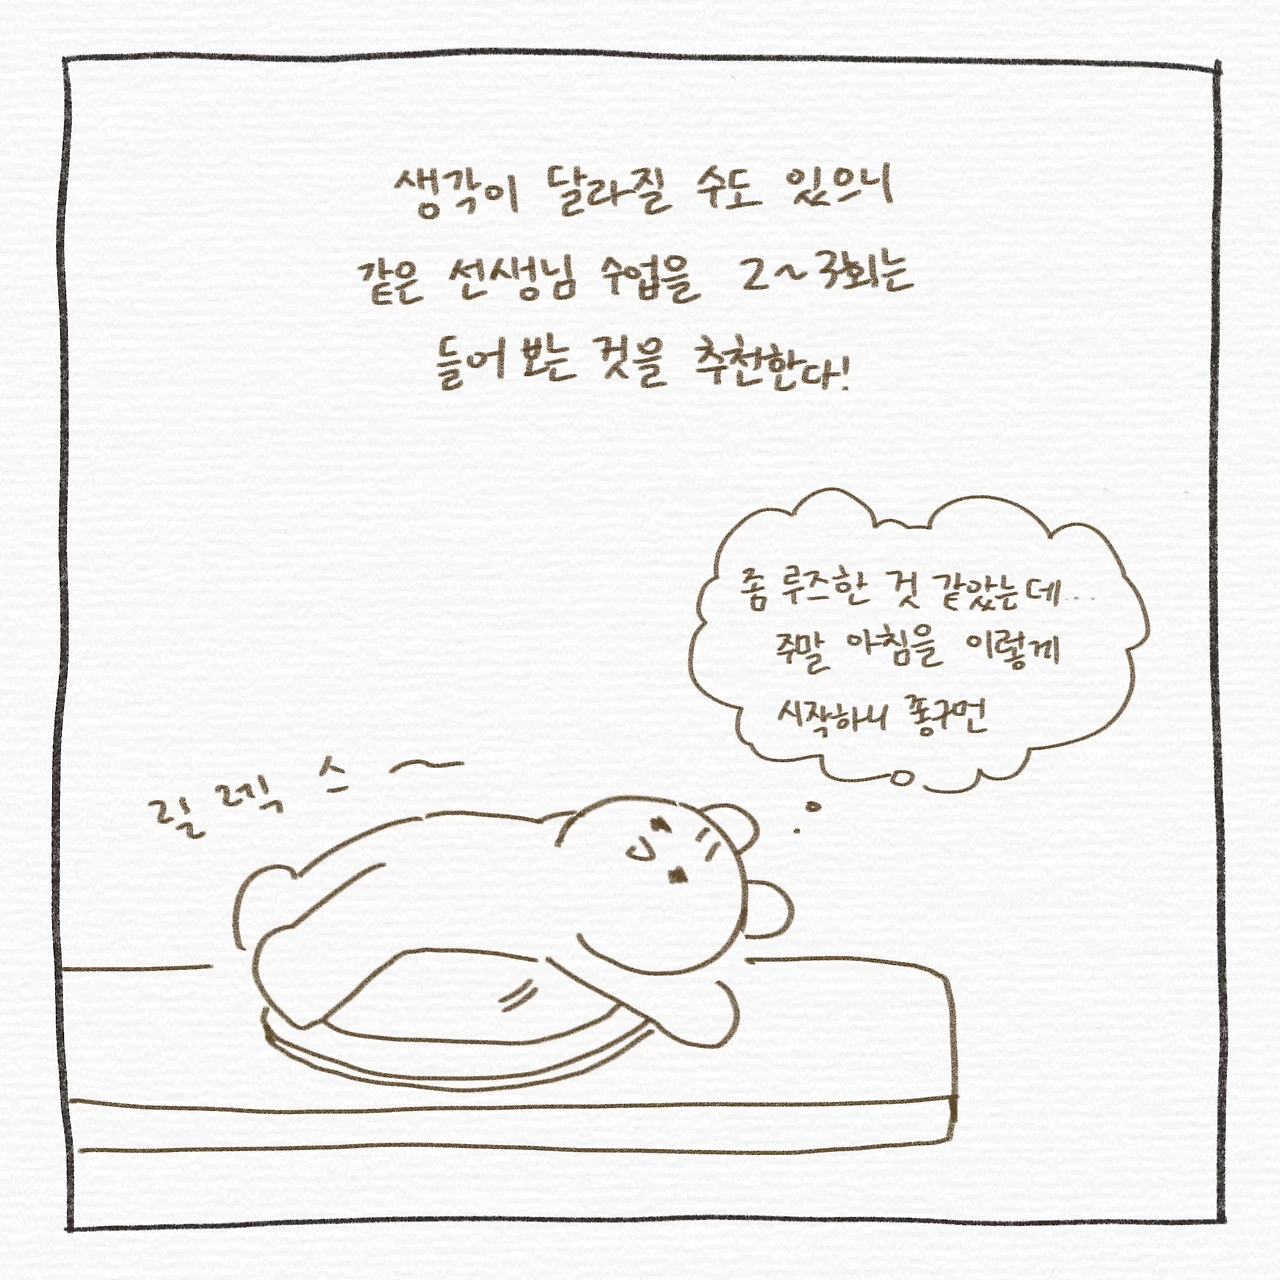 생각이 달라질 수도 있으니
같은 선생님 수업을 2~3회는
들어 보는 것을 추천한다!
좀 루즈한 것 같았는데...
주말 아침을 이렇게
시작하니 좋구먼
릴렉스~